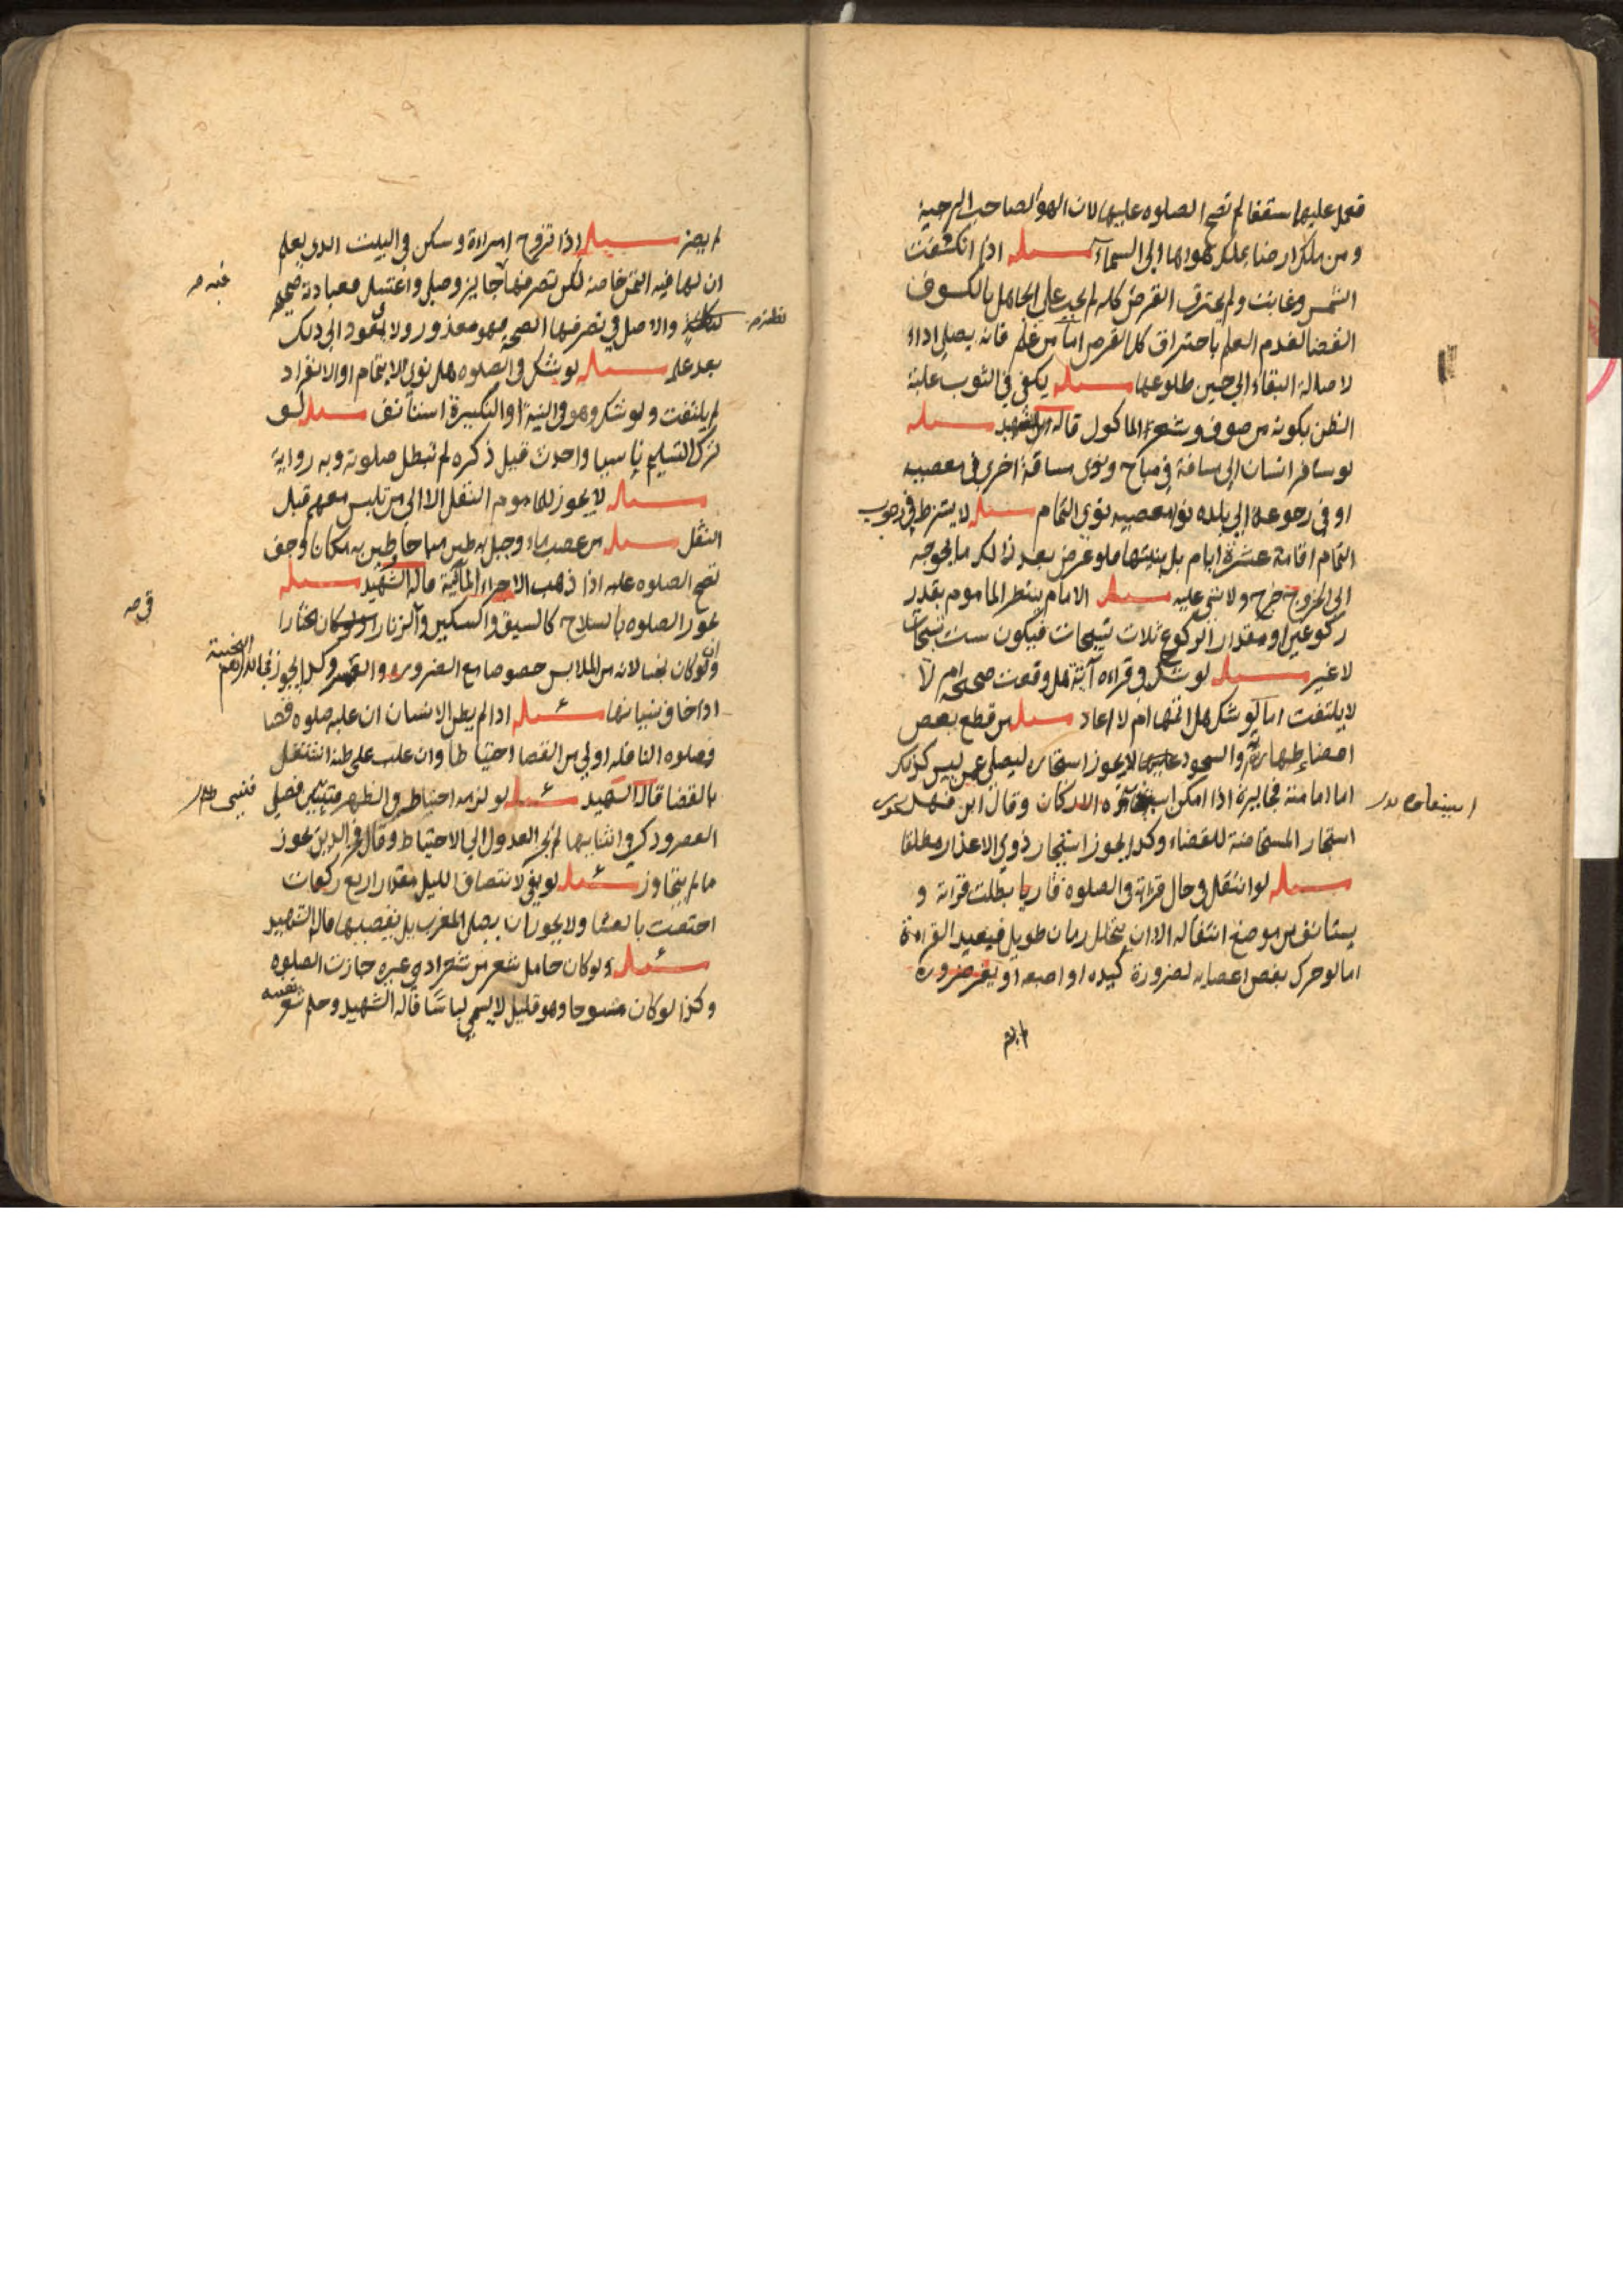 فعمل عليها سقفا لم تصح الصلوه عليها لان الهوا لصاحب الرحبة
ومن ملك ارضا ملك هواها الى السماء مسئله اذا انكشفت
الشمس وغابت ولم يحترق القرص كله لم يجب على الجاهل بالكسوف
القضا لعدم العلم باحتراق كل القرص اما من علم فانه يصلي اداء
لاصالة البقاء الى حين طلوعها مسئله يكفي في الثوب غلبة
الظن بكونه من صوف وشعر الماكول قاله الشهيد مسئله
لو سافر انسان الى مسافة في مباح ونوى مسافة اخرى في معصيه
او في رجوعه الى بلده نوا معصيه نوى التمام مسئله لا يشترط في وجوب
التمام اقامة عشرة ايام بل بنيتها فلو عرض بعد ذلك ما يحوجه
الى الخروج خرج ولا شي عليه مسئله الامام ينتظر الماموم بقدر
ركوعين او مقدار الركوع ثلاث تسبيحات فيكون ست تسبيحات
لا غير مسئله لو شك في قراءه آية هل وقعت صحيحه ام لا
لا يلتفت اما لو شك هل اتمها ام لا اعاد مسئله من قطع بعض
اعضاء طهارته والسجود لا يجوز استجاره ليصلي عمن ليس كذلك
اما امامته فجايزة اذا امكن الاركان وقال ابن فهد يجوز
استجار المستحاضة للقضاء وكذا يجوز استيجار ذوي الاعذار مطلقا
مسئله لو انتقل في حال قراته في الصلوة قاريا بطلت قراته و
يستانف من موضع انتقاله الا ان يتخلل زمان طويل فيعيد القراءة
اما لو حرك بعض اعضايه لضرورة كيده او اصبعه او لغير ضرورة
لم يضر
لم يضر مسئله اذا تزوج امراءة وسكن في البيت الذي يعلم
ان لها فيه الثمن خاصة لكن تصرفها جايز وصلى واغتسل فعبادته صحيحه
والاصل في تصرفها الصحة فهو معذور ولا يعود الى ذلك
بعد علمه مسئله لو شك في الصلوه هل نوى الايتمام او الانفراد
لم يلتفت ولو شك وهو في النية او التكبيرة استانف مسئله لو
ترك التسليم ناسيا واحدث قبل ذكره لم تبطل صلوته وبه رواية
مسئله لا يجوز للماموم النقل الا الى من تلبس معهم قبل
النقل مسئله من غصب ماء وجبل به طين مباحا وطين به مكانا وجف
تصح الصلوه عليه اذا ذهب الاجزاء المائية قاله الشهيد مسئله
يجوز الصلوه بالسلاح كالسيف والسكين والزنار ولو كان مختارا
ولو كان نجسا لانه من الملابس خصوصا مع الضروره
اذا خاف نسيانها مسئله اذا لم يظن الانسان ان عليه صلوه قضا
فصلوه النافله اولى من القضا احتياطا وان غلب على ظنه اشتغل
بالقضا قاله الشهيد مسئله لو لزمه احتياط في الظهر فصلى
العصر وذكر في اثنايها لم يجز العدول الى الاحتياط وقال فخر الدين يجوز
ما لم يتجاوز مسئله لو بقي لانتصاف الليل مقدار اربع ركعات
اختصت بالعشا ولا يجوز ان يصلي المغرب بل يقضيها قاله الشهيد
مسئله ولو كان حامل شعر من شعر ادمي غيره جازت الصلوه
وكذا لو كان منسوجا وهو قليل لا يسمى لباسا قاله الشهيد وحلم شعر نفسه